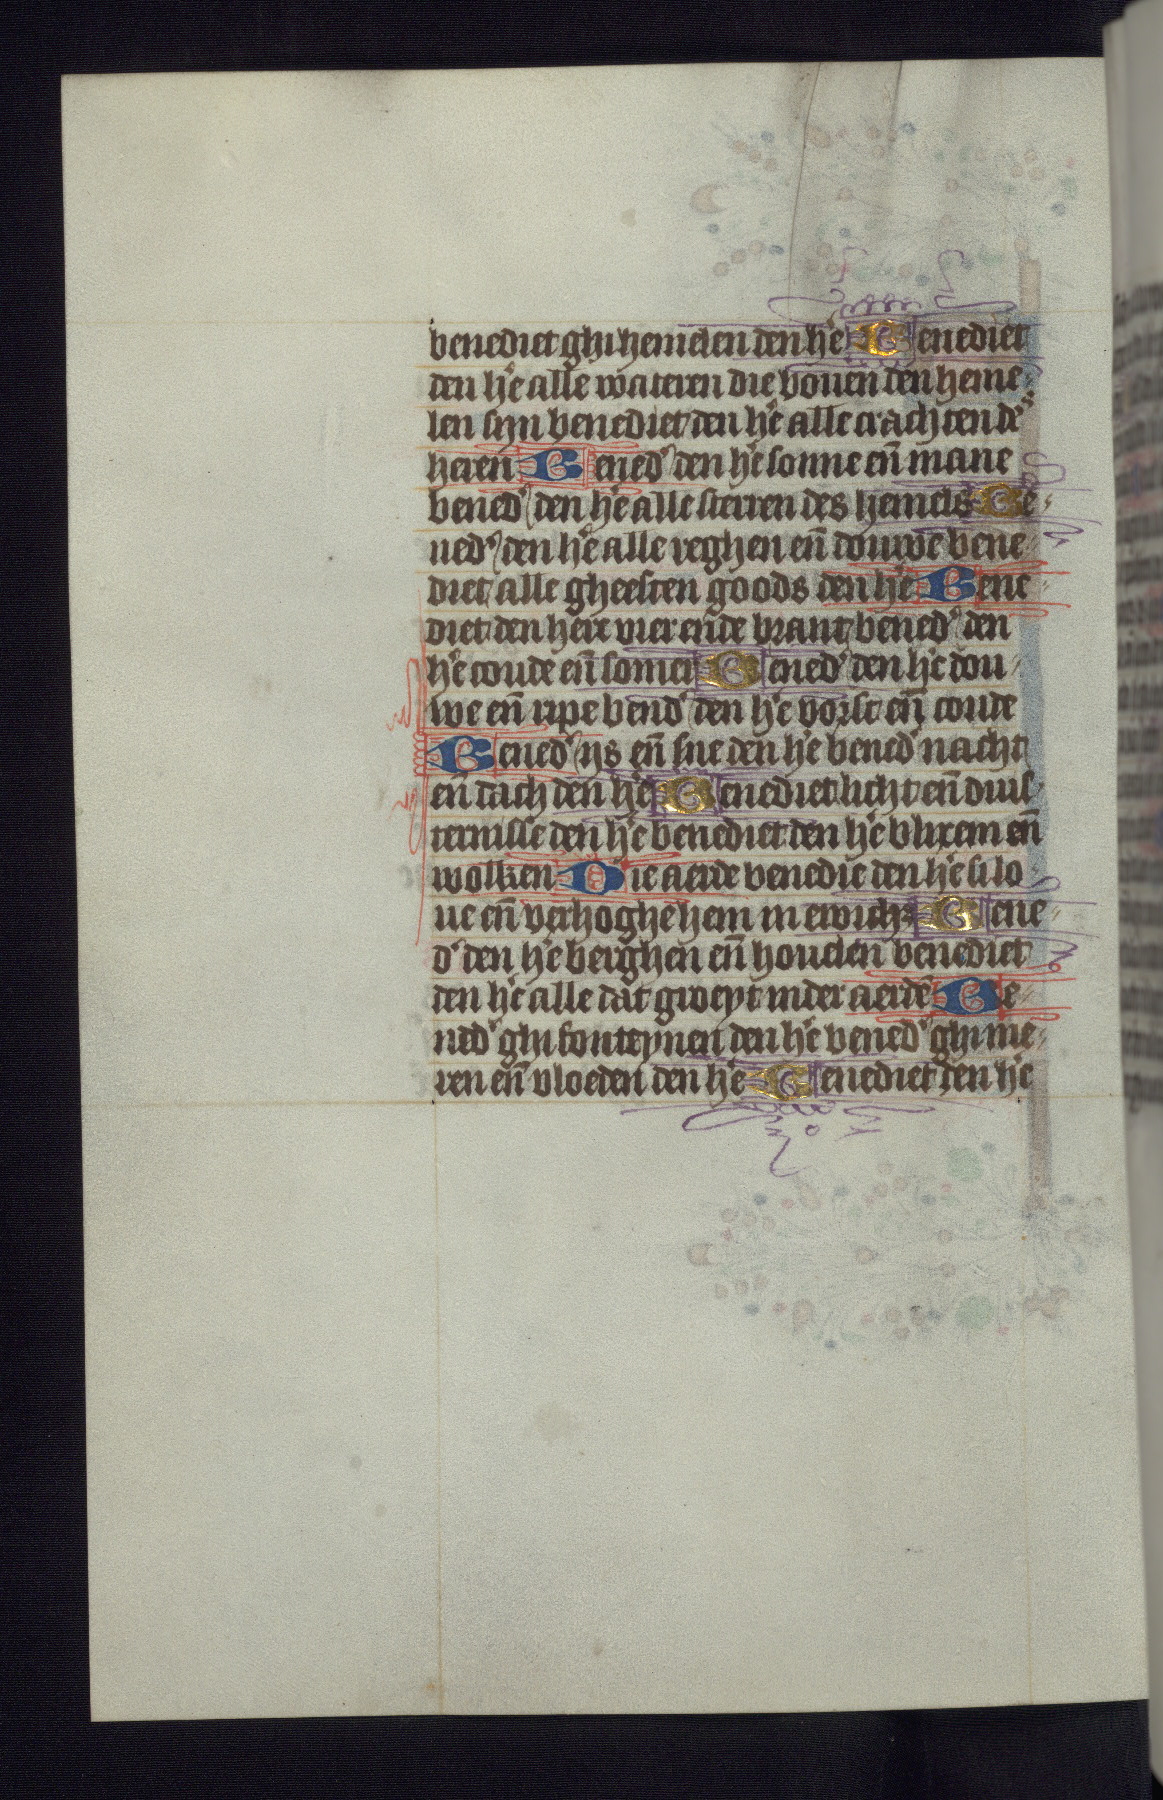 benediet ghi hemelen den he͛ Benediet
den he͛ alle wateren die bouen den heme
len syn benediet den he͛ alle crachten des
heren Bened͛ den he͛ sonne en̄ mane
bened͛ den he͛ alle sterren des hemels Be
ned͛ den he͛ alle reghen en̄ douwe bene
diet alle gheesten goods den he͛ Bene
diet den here vier ende brant bened͛ den
he͛ coude en̄ somer Bened͛ den he͛ dou
we en̄ ripe bend͛ den he͛ vorst en̄ coude
Bened͛ ys en̄ sne den he͛ bened͛ nacht
en̄ dach den he͛ Benediet licht en̄ duis
ternisse den he͛ benediet den he͛ blixem en̄
wolken Die aerde benedie den he͛ si lo
ue en̄ verhoghe hem in ewich͛ Bene
d͛ den he͛ berghen en̄ houelen benediet
den he͛ alle dat groeyt inder aerdē Be
ned͛ ghi fonteynen den he͛ bened͛ ghi me
ren en̄ vloeden den he͛ Benediet den he͛